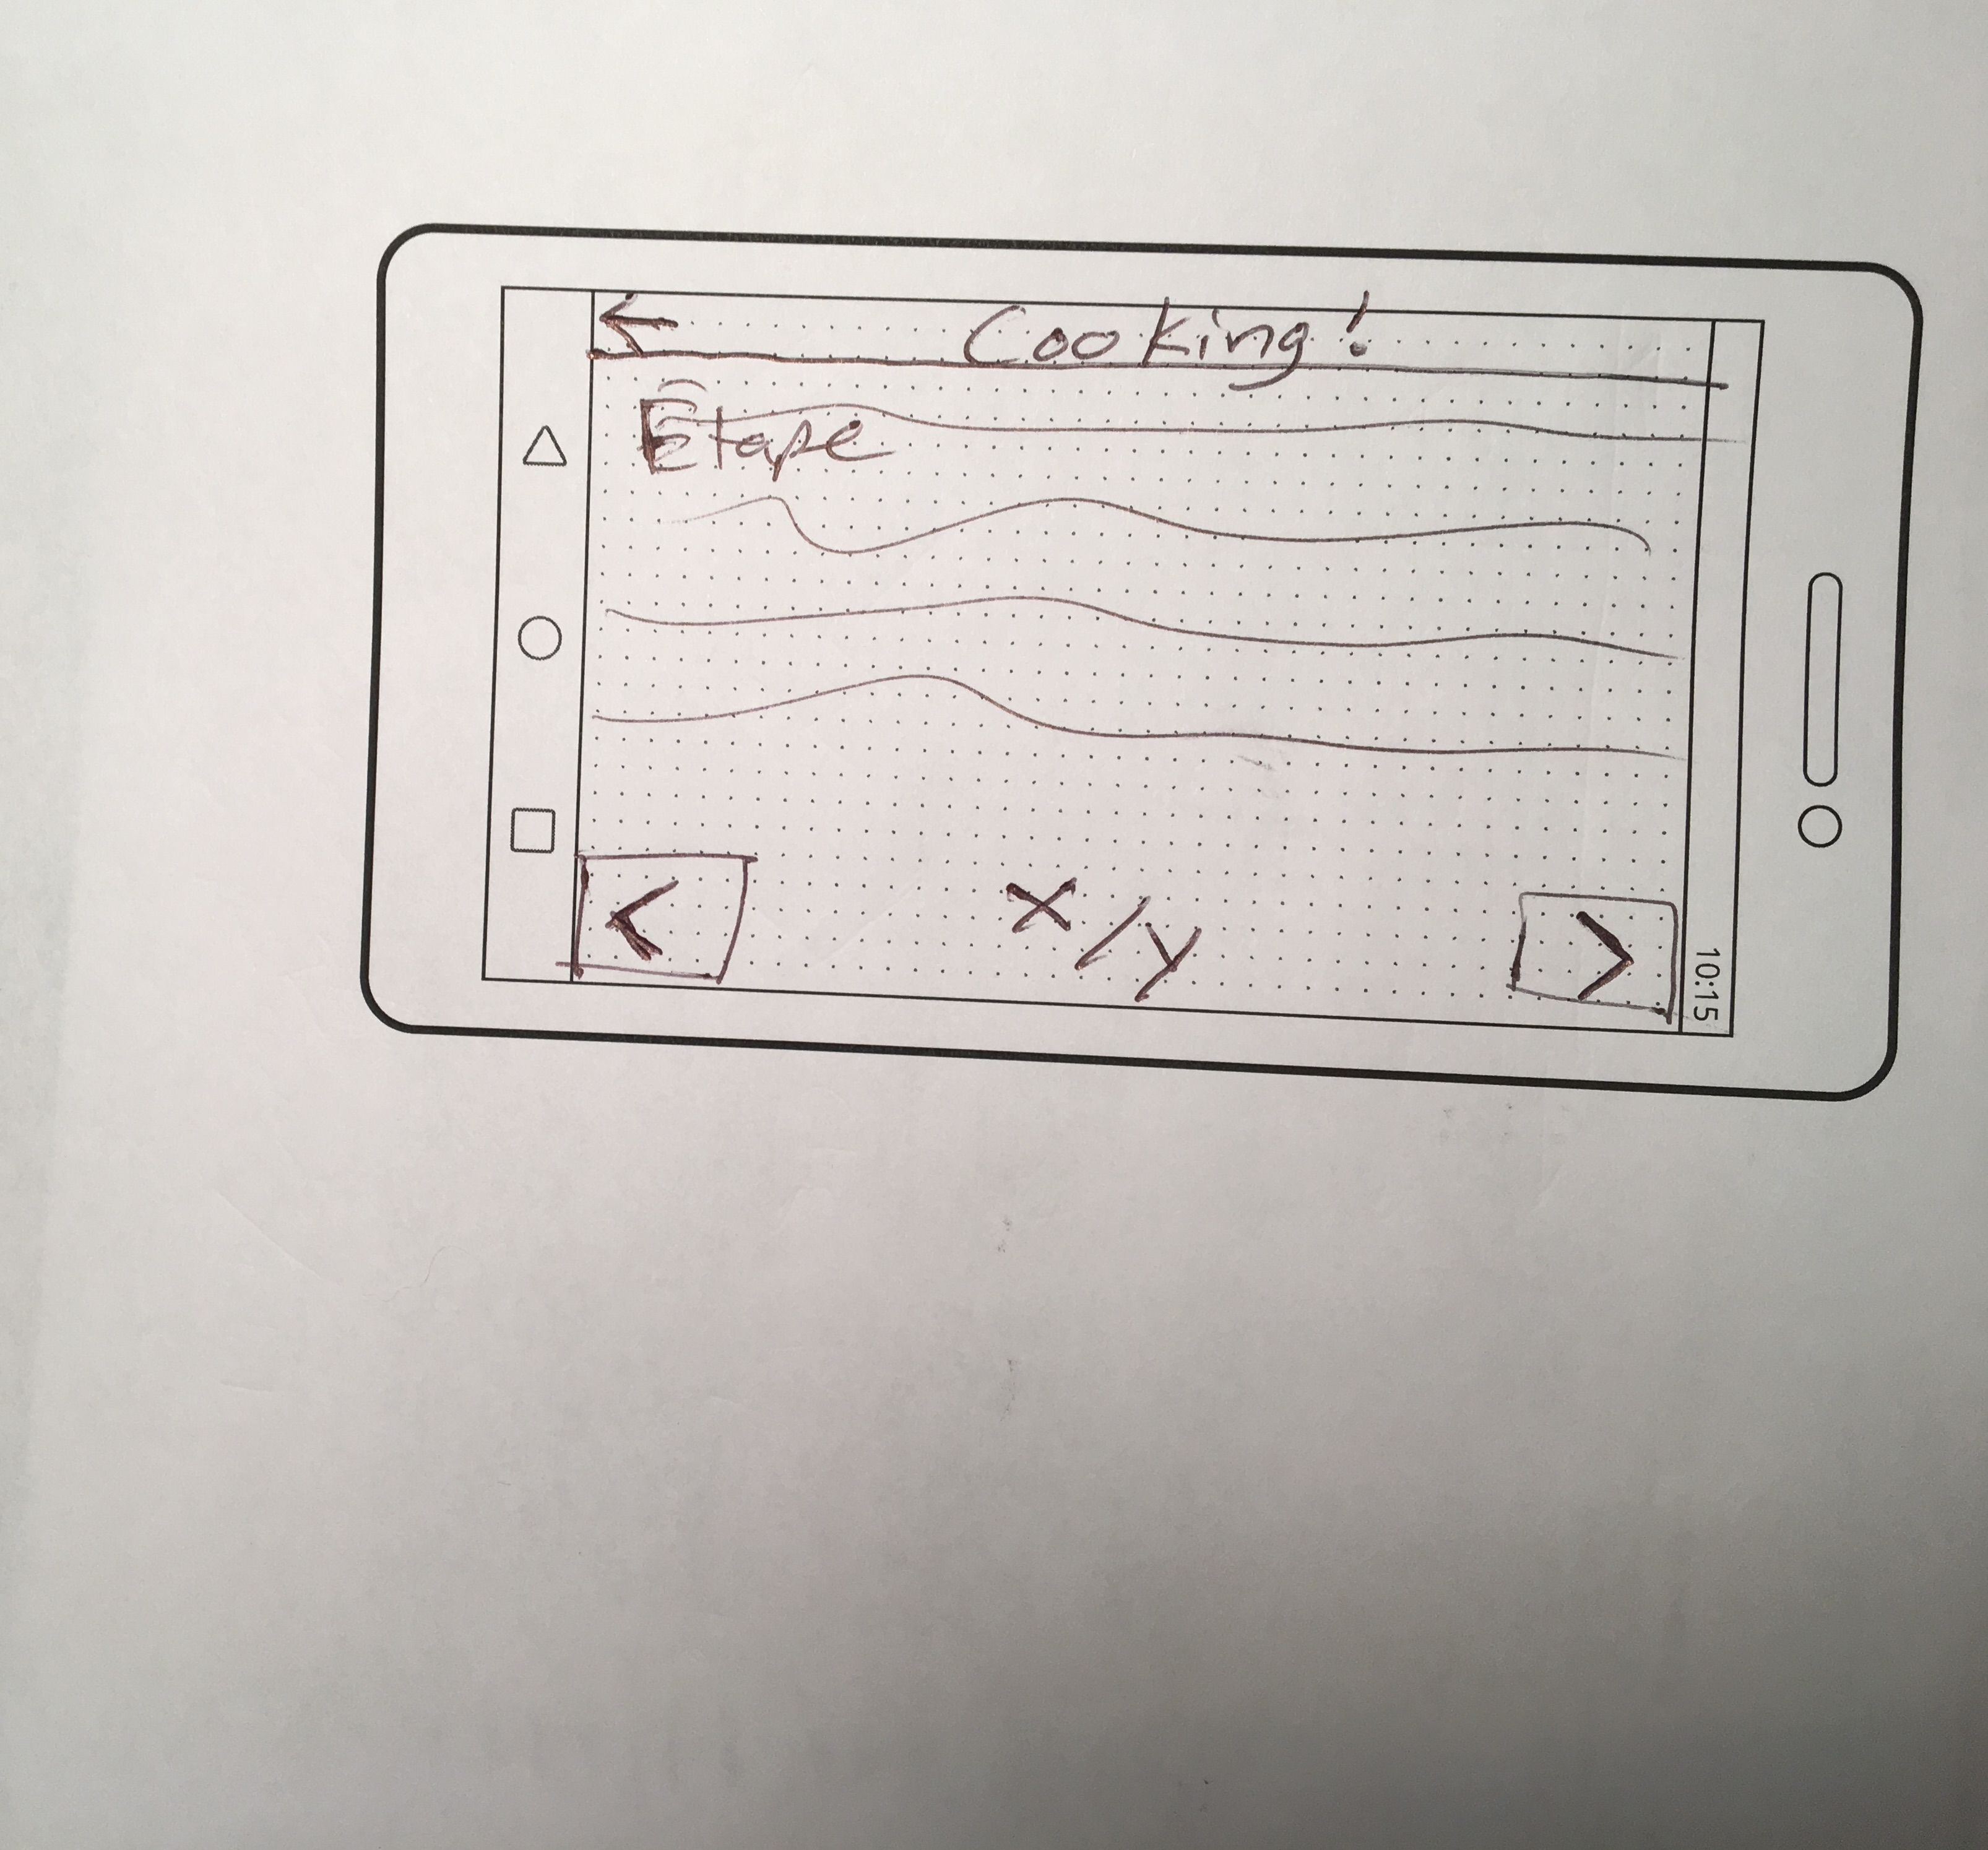 ← Cooking!
Étape
< x/y >
10:15